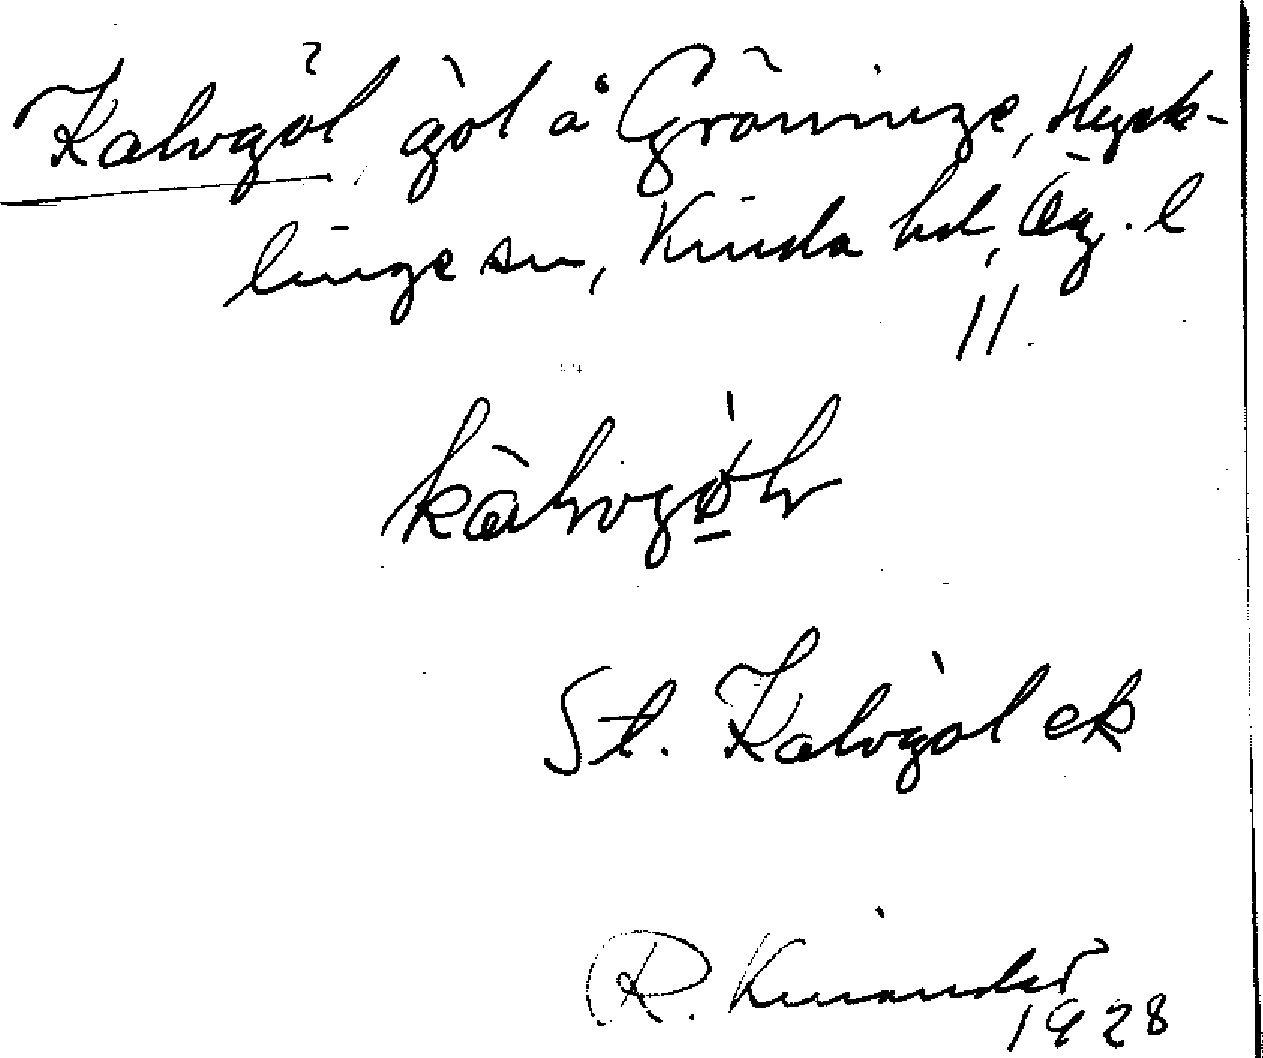 Kalvgöl, göl å Gröninge, Hyck-
linge sn, Kinda hd, Ög. l
11.
kàlvgø̱l
St. Kalvgöl ek
R. Kinander
1928